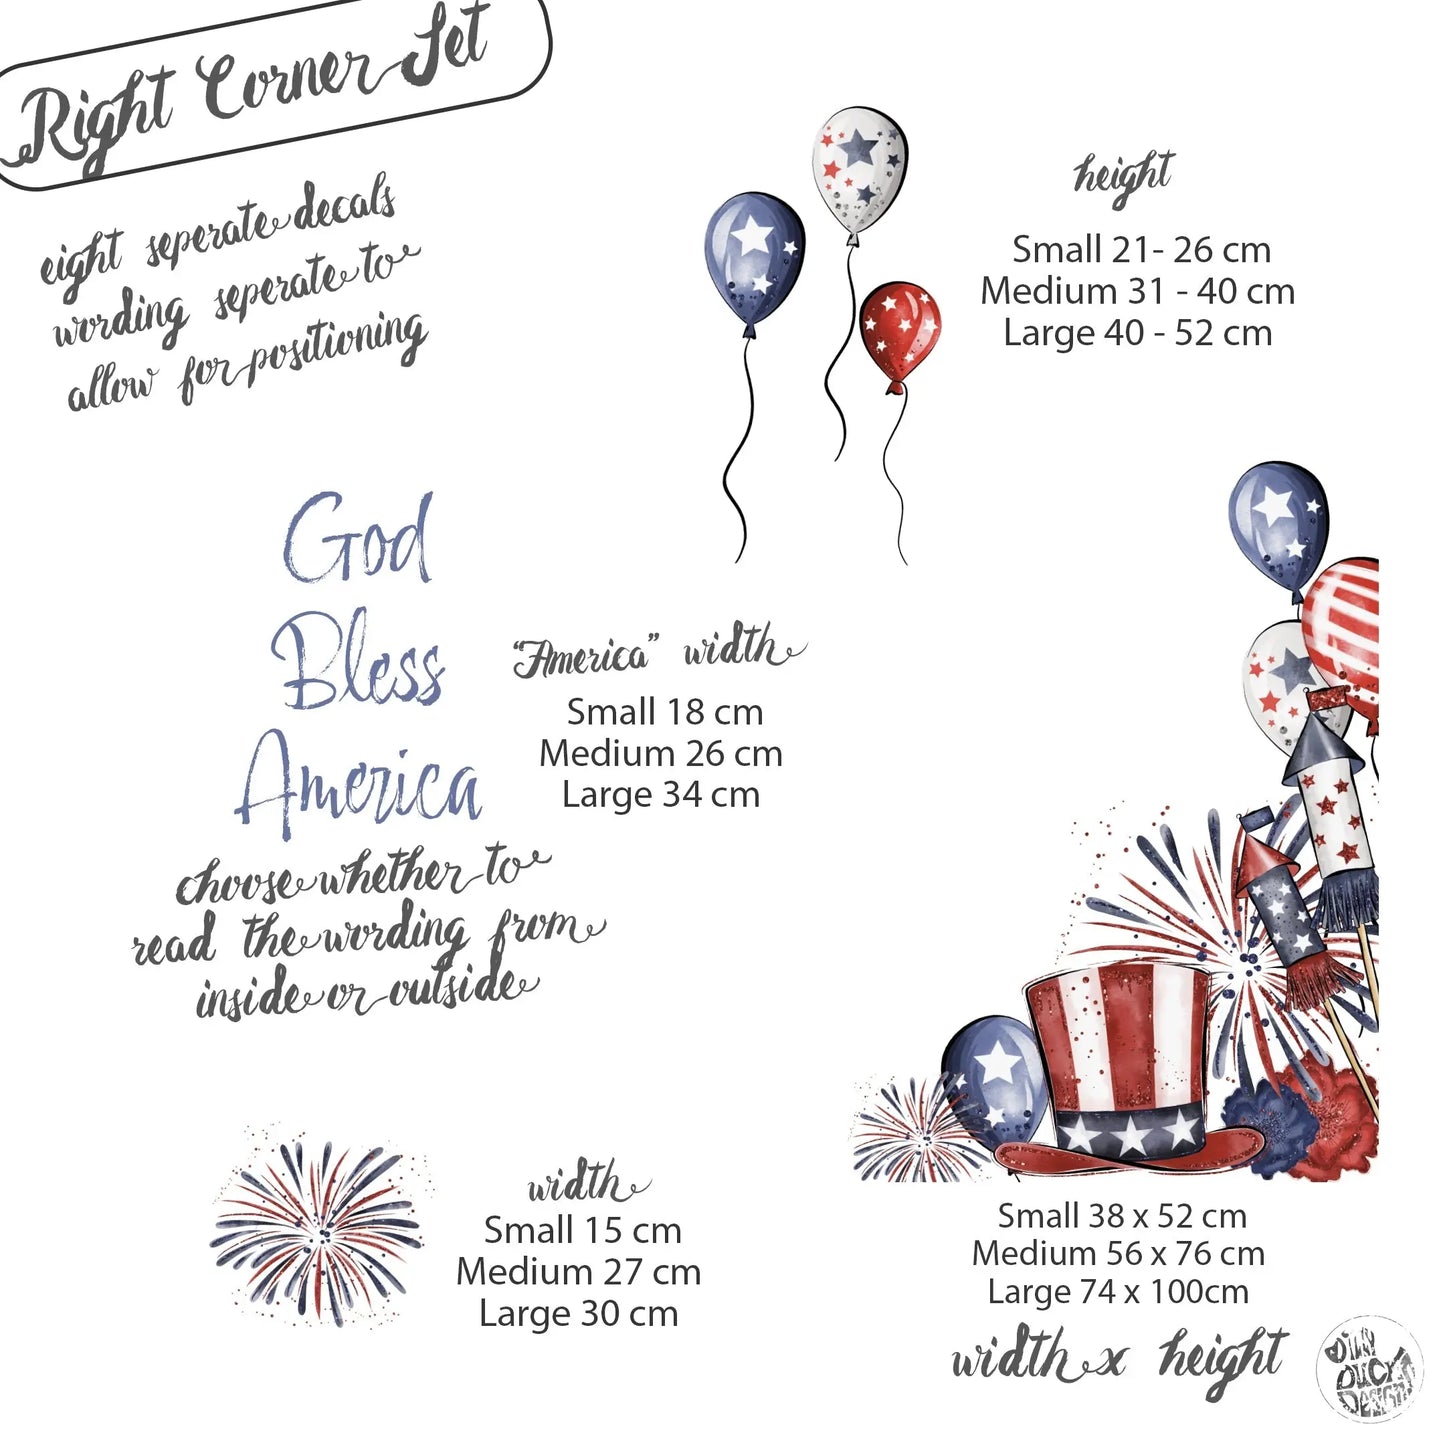 Right Corner Set
eight seperate decals
wording seperate to
allow for positioning
height
Small 21- 26 cm
Medium 31 - 40 cm
Large 40 - 52 cm
God
Bless
America
"America" width
Small 18 cm
Medium 26 cm
Large 34 cm
choose whether to
read the wording from
inside or outside
width
Small 15 cm
Medium 27 cm
Large 30 cm
Small 38 x 52 cm
Medium 56 x 76 cm
Large 74 x 100cm
width x height
DILLY
DUCKS
DESIGNS